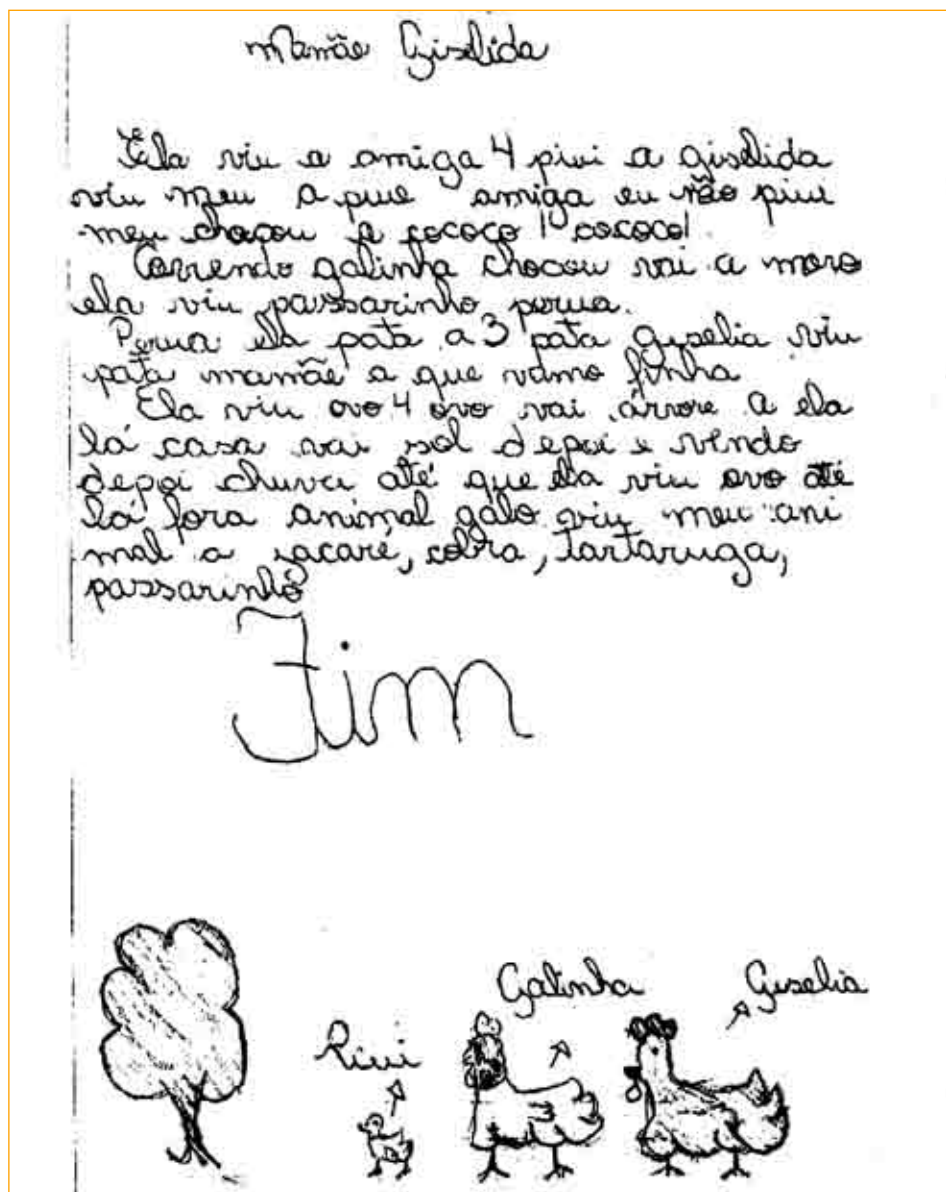 Mamãe Giselida
Ela viu a amiga 4 piui a giselida
viu meu a que amiga eu não piui
meu chocou a cococo! cococo!
Correndo galinha chocou vai a moro
ela viu passarinho, perua.
Perua ela pata a 3 pata giselia viu
pata mamãe a que vamo finha
Ela viu ovo 4 ovo vai árvore a ela
lá casa vai sol depoi e vindo
depoi chuva até que ela viu ovo até
lá fora animal galo viu meu ani
mal a jacaré, cobra, tartaruga,
passarinho
Fim
Galinha Giselia
Piui